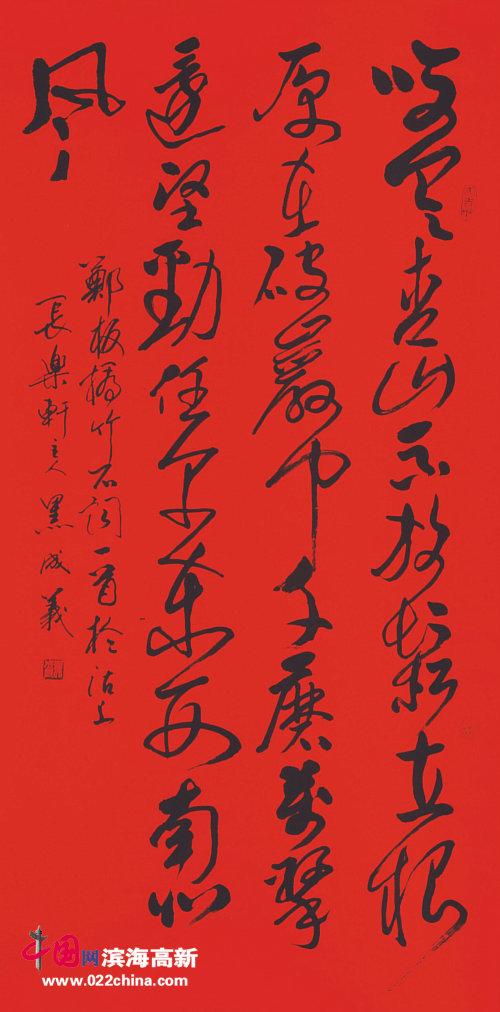 咬定青山不放鬆立根
原在破巖中千磨萬擊
還堅勁任尔東西南北
风
鄭板橋竹石詞一首於沽上
長樂軒主人黑成義
中国网滨海高新
www.022china.com